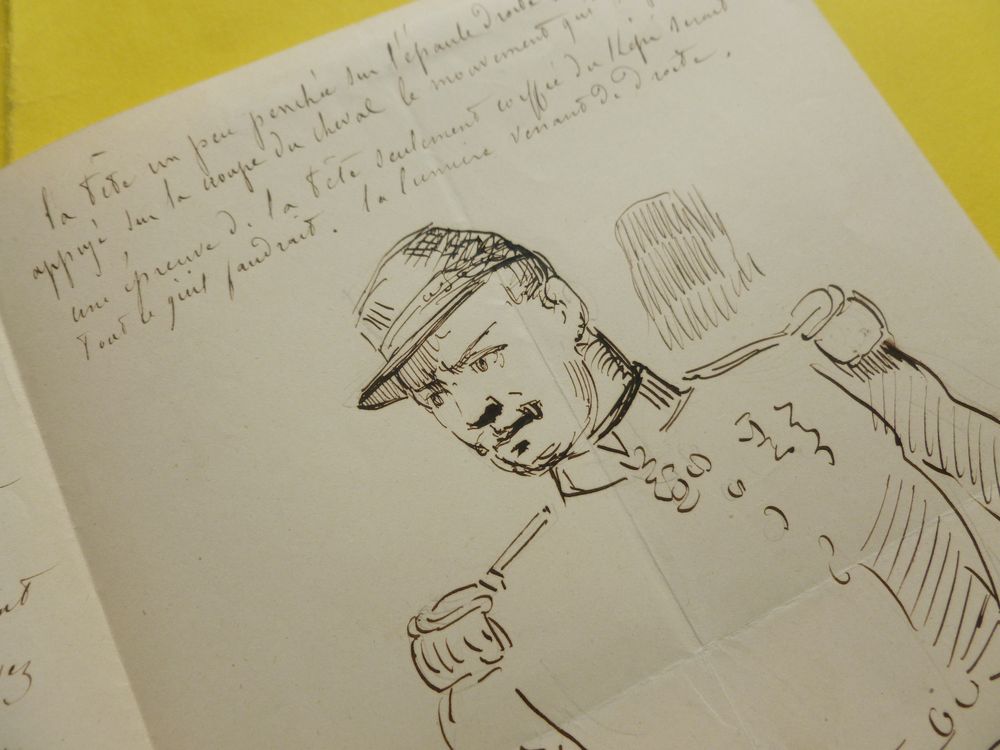 la tête un peu penchée sur l'épaule droite
appuyé sur la croupe du cheval le mouvement qui
une épreuve de la tête seulement coiffée du Képi serait
tout ce qu'il faudrait. la lumière venant de droite.